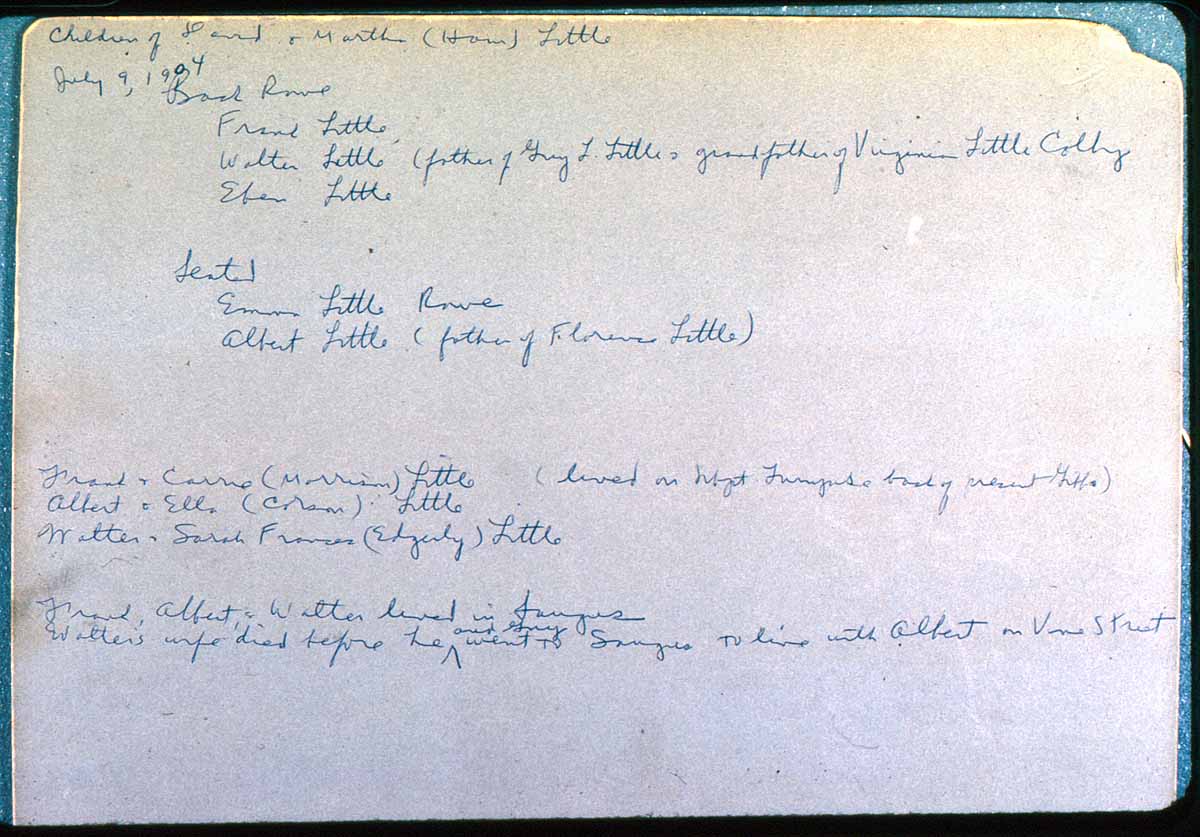 Children of David & Martha (Ham) Little
July 9, 1904
Back Rowe
Frank Little
Walter Little (father of Guy L. Little & grandfather of Virginia Little Colby
Eben Little
Seated
Emma Little Rowe
Albert Little (father of Florence Little)
Frank & Carrie (Morrison) Little (lived on back of present
Albert & Ella (Corson) Little
Walter & Sarah Frances (Edgerly) Little
Frank, Albert, & Walter lived in Saugus
Walter's wife died before he and Guy went to Saugus to live with Albert on Vine Street